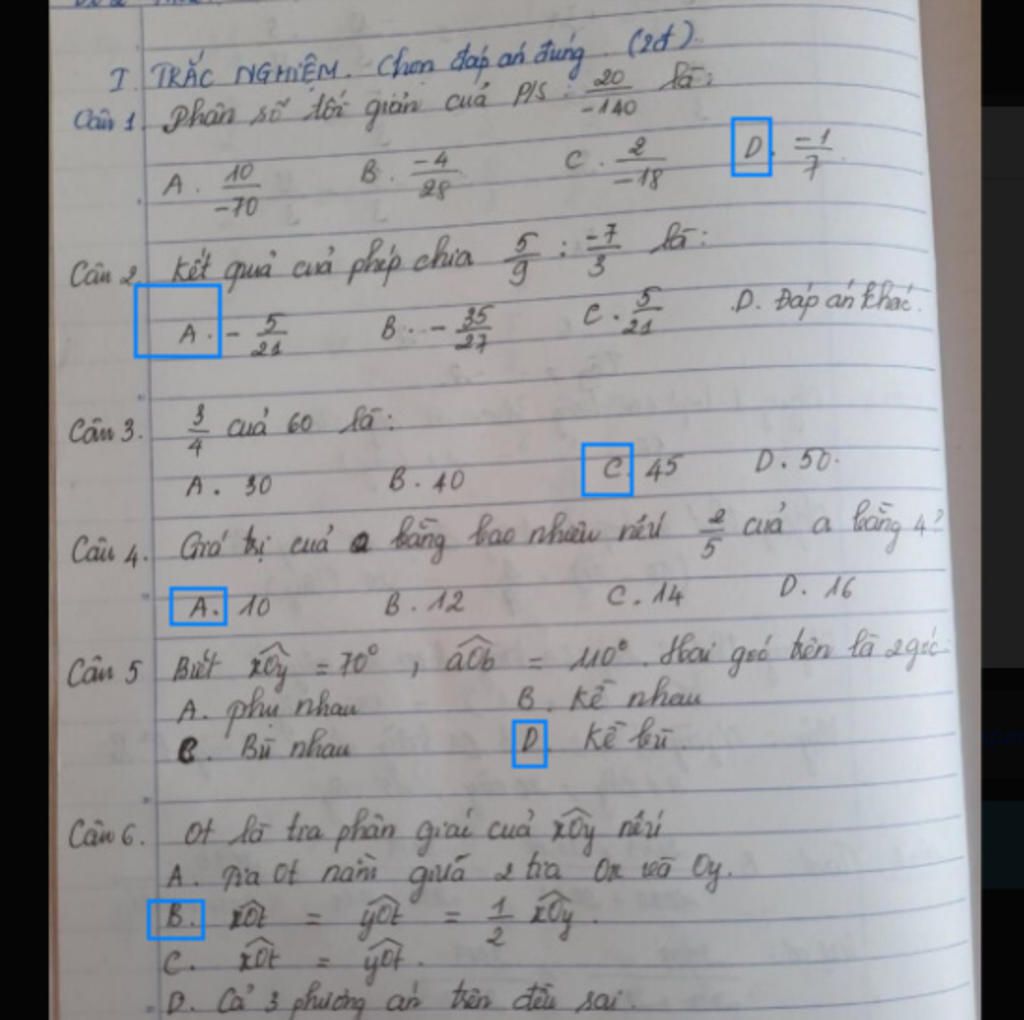 I. TRẮC NGHIỆM. Chọn đáp án đúng. (2đ).
Câu 1. Phân số tối giản của P/S: 20/-140 là:
A. 10/-70 B. -4/28 C. 2/-18 D. -1/7
Câu 2. Kết quả của phép chia 5/9 : -7/3 là:
A. - 5/21 B. - 35/27 C. 5/21 D. Đáp án khác.
Câu 3. 3/4 của 60 là:
A. 30 B. 40 C. 45 D. 50.
Câu 4. Giá trị của a bằng bao nhiêu nếu 2/5 của a bằng 4?
A. 10 B. 12 C. 14 D. 16
Câu 5 Biết xOy = 70°, aOb = 110°. Hai góc trên là 2 góc
A. phụ nhau B. Kề nhau
C. Bù nhau D. Kề bù.
Câu 6. Ot là tia phân giác của xOy nếu
A. Tia Ot nằm giữa 2 tia Ox và Oy.
B. xOt = yOt = 1/2 xOy.
C. xOt = yOt.
D. Cả 3 phương án trên đều sai.